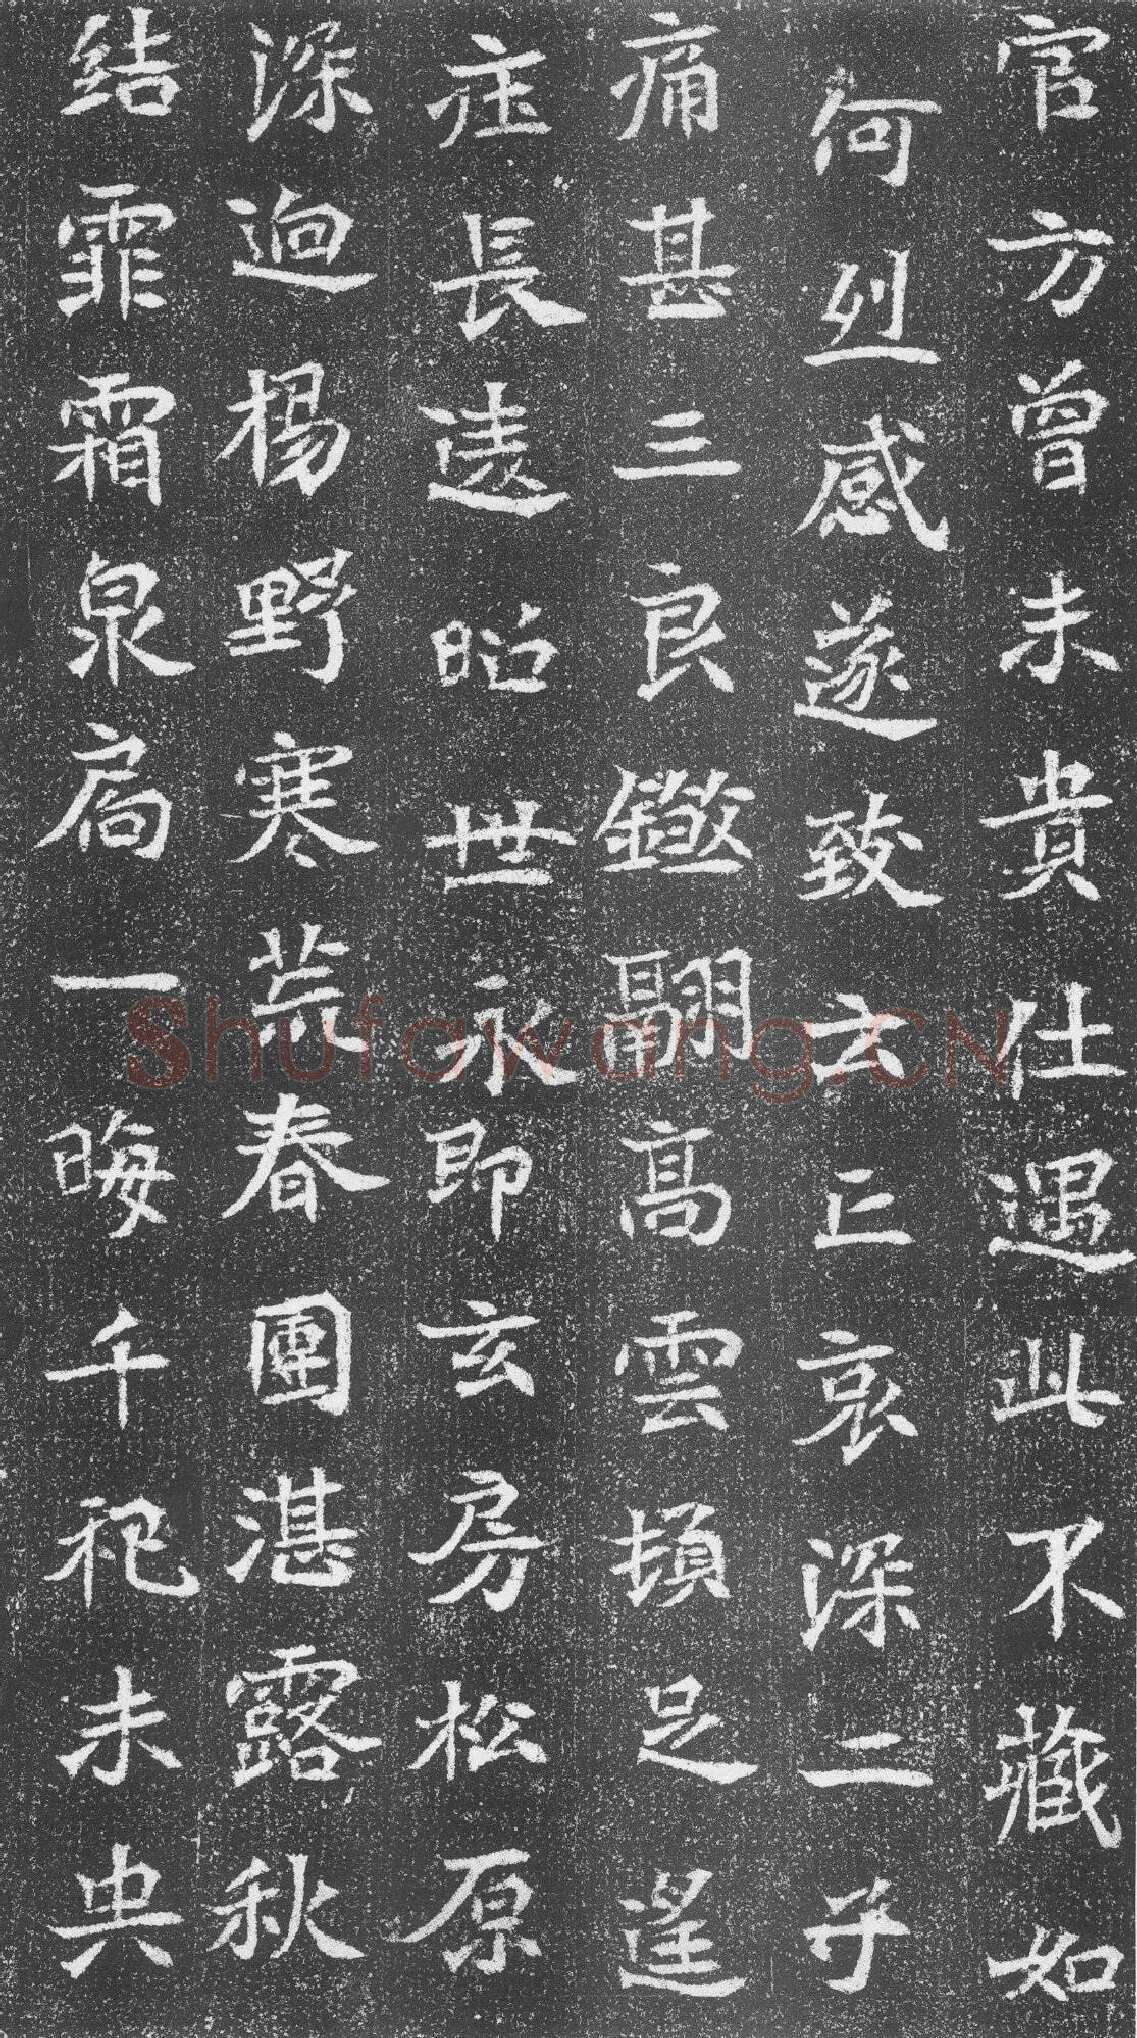 官方曾未貴仕遇此不藏如
何烈感遂致云亡哀深二子
痛甚三良翮高雲頓足遥
庄長遠昭世永即玄房松原
深迥楊野寒荒春團湛露秋
結霏霜泉扃一晦千祀未央
Shufawang.CN